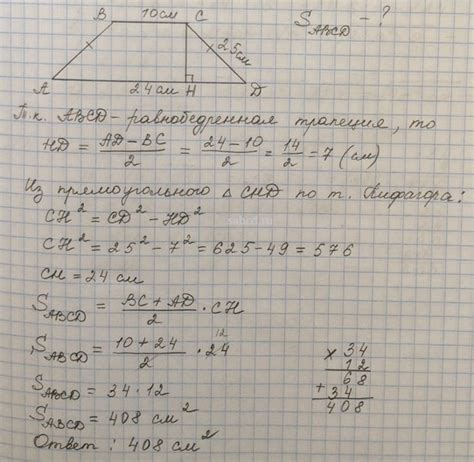 B 10см C S_ABCD - ?
25см
A 24см H D
Т.к. ABCD - равнобедренная трапеция, то
HD = (AD - BC)/2 = (24 - 10)/2 = 14/2 = 7 (см)
Из прямоугольного Δ CHD по т. Пифагора:
CH² = CD² - HD²
CH² = 25² - 7² = 625 - 49 = 576
CH = 24 см
S_ABCD = (BC + AD)/2 · CH
S_ABCD = (10 + 24)/2 · 24 12
S_ABCD = 34 · 12
S_ABCD = 408 см²
Ответ: 408 см²
× 34
12
68
+ 34
408